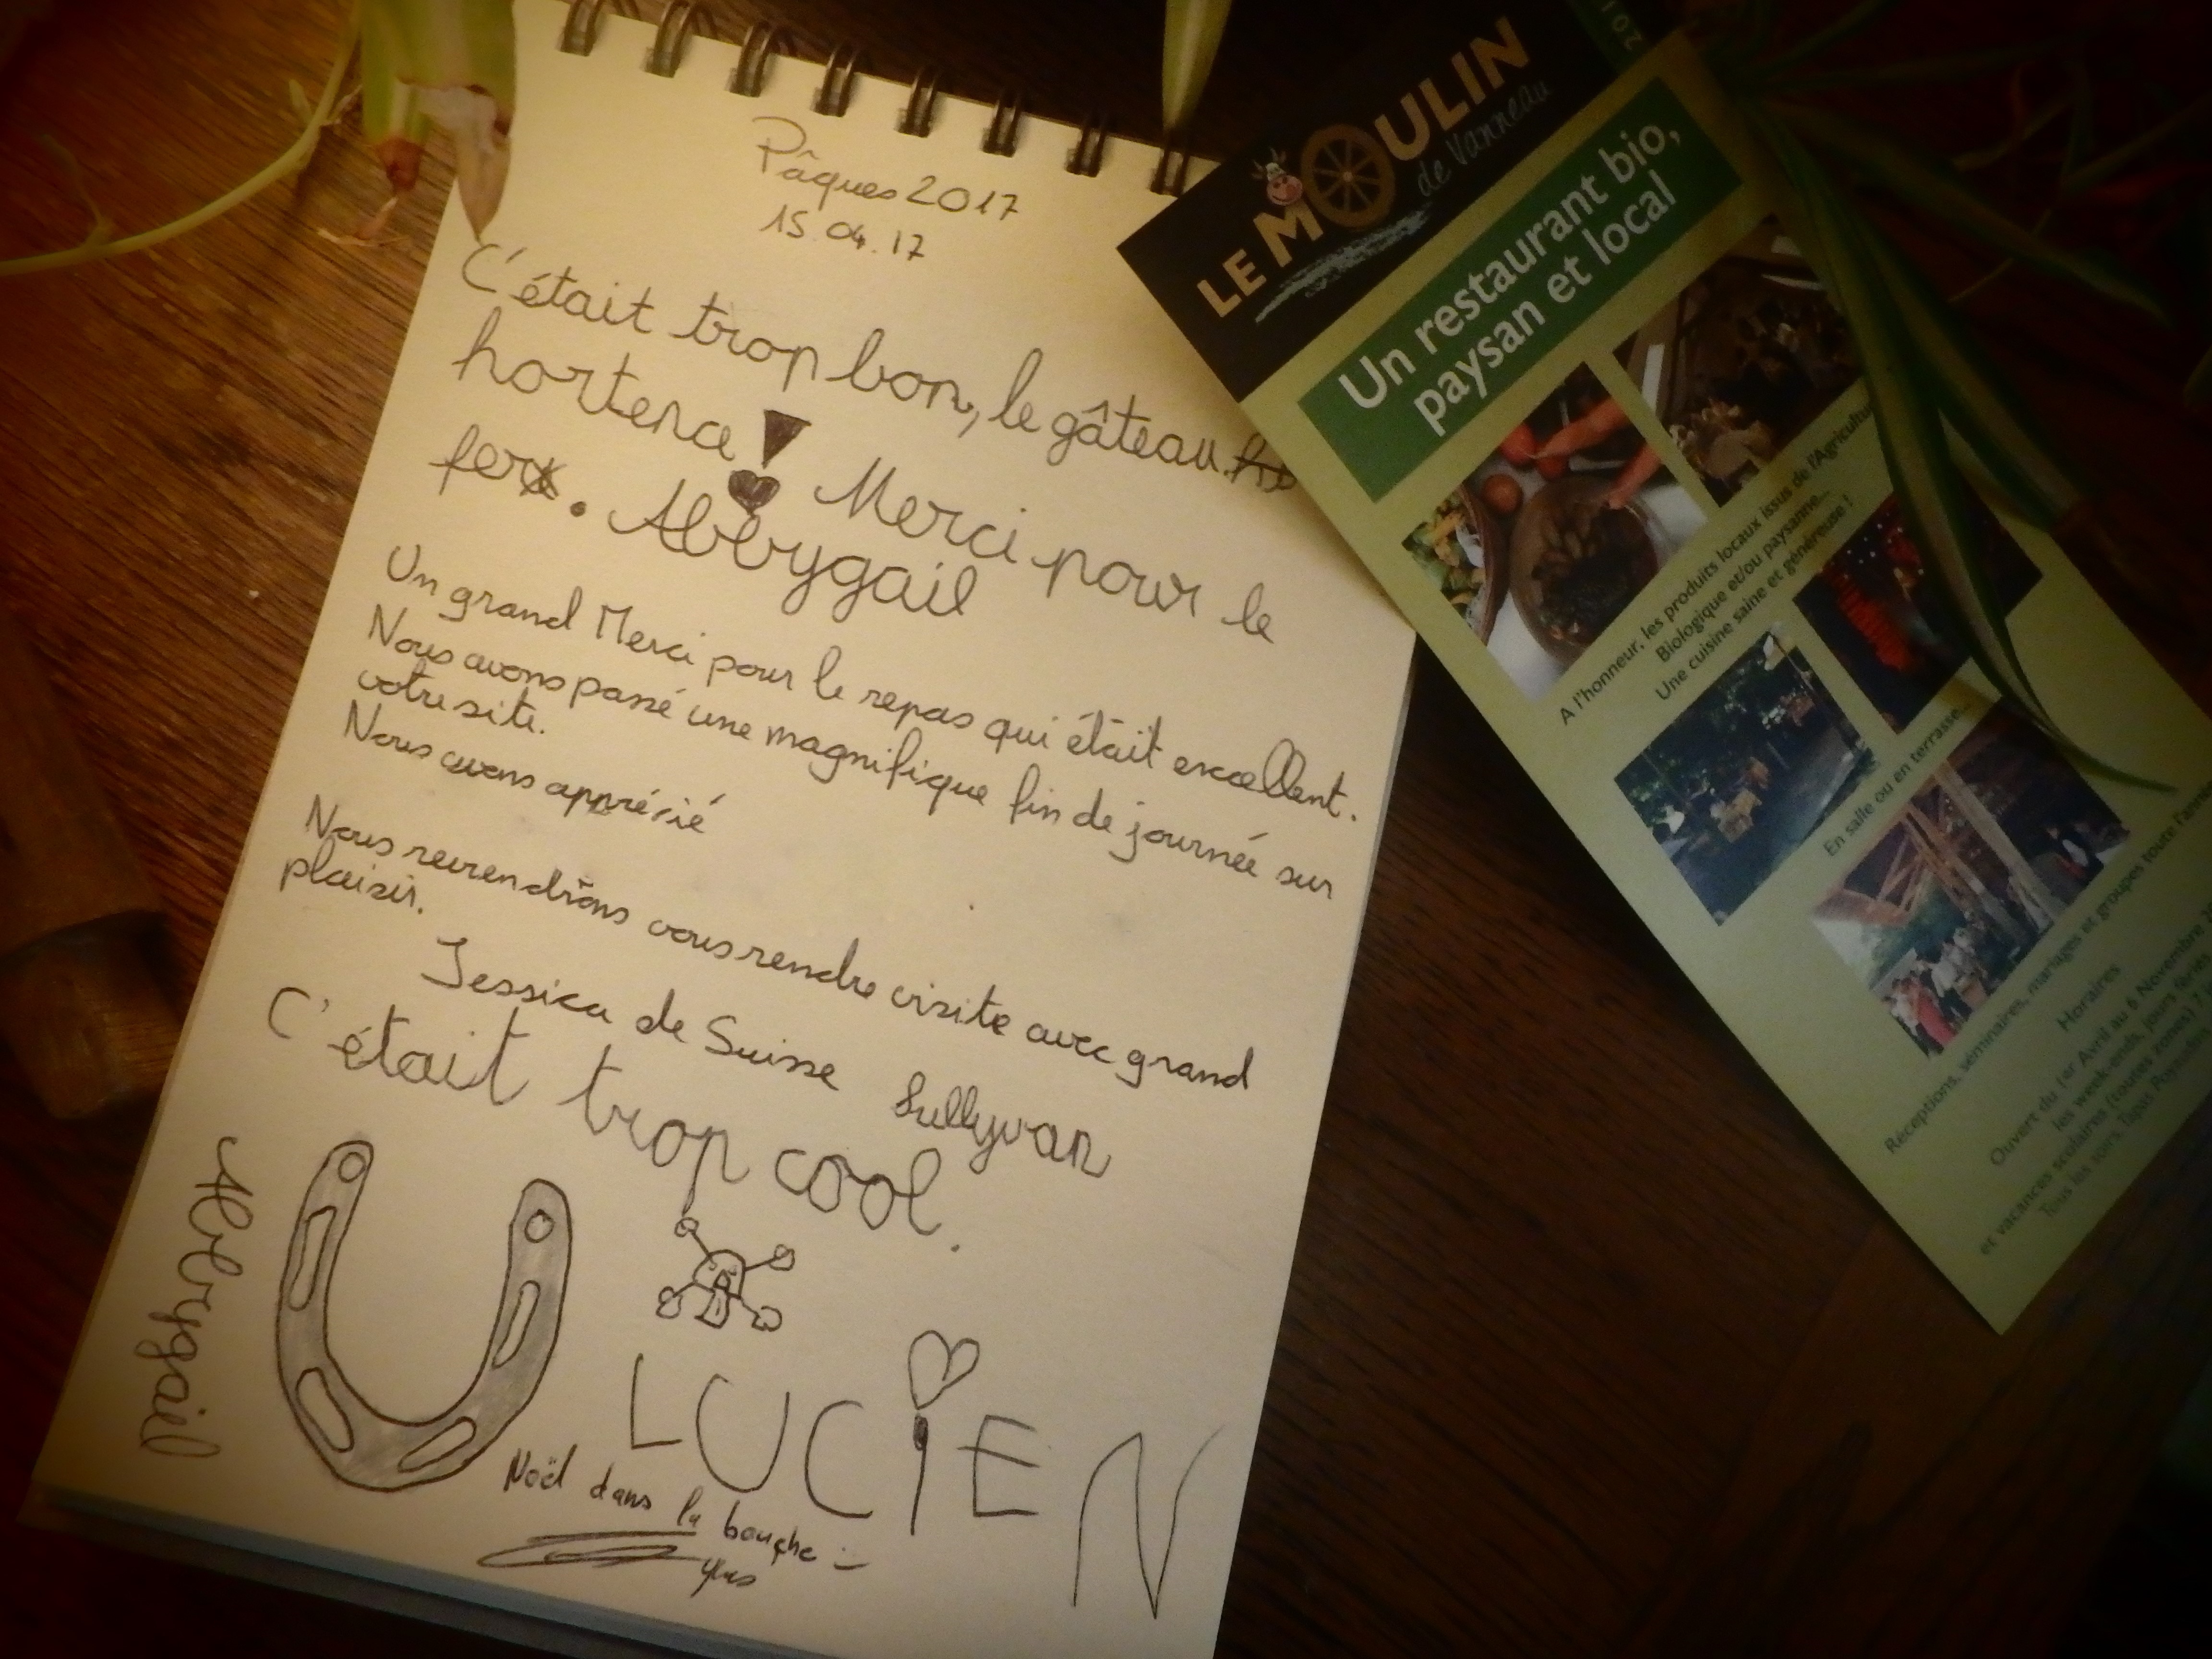 Pâques 2017
15.04.17
C'était trop bon, le gâteau
hortence! Merci pour le
fer. Abbygail
Un grand Merci pour le repas qui était excellent.
Nous avons passé une magnifique fin de journée sur
votre site.
Nous avons apprécié
Nous reviendrons vous rendre visite avec grand
plaisir.
Jessica de Suisse Sullyvan
C'était trop cool.
Abbygail
LUCiEN
Noël dans la bouche
LE MOULIN
de Vanneau
201
Un restaurant bio,
paysan et local
A l'honneur, les produits locaux issus de l'Agricultu
Biologique et/ou paysanne...
Une cuisine saine et généreuse !
En salle ou en terrasse...
Réceptions, séminaires, mariages et groupes toute l'anné
Horaires
Ouvert du 1er Avril au 6 Novembre
les week-ends, jours fériés
et vacances scolaires (toutes zones) 7
Tous les soirs, Tapas Paysan